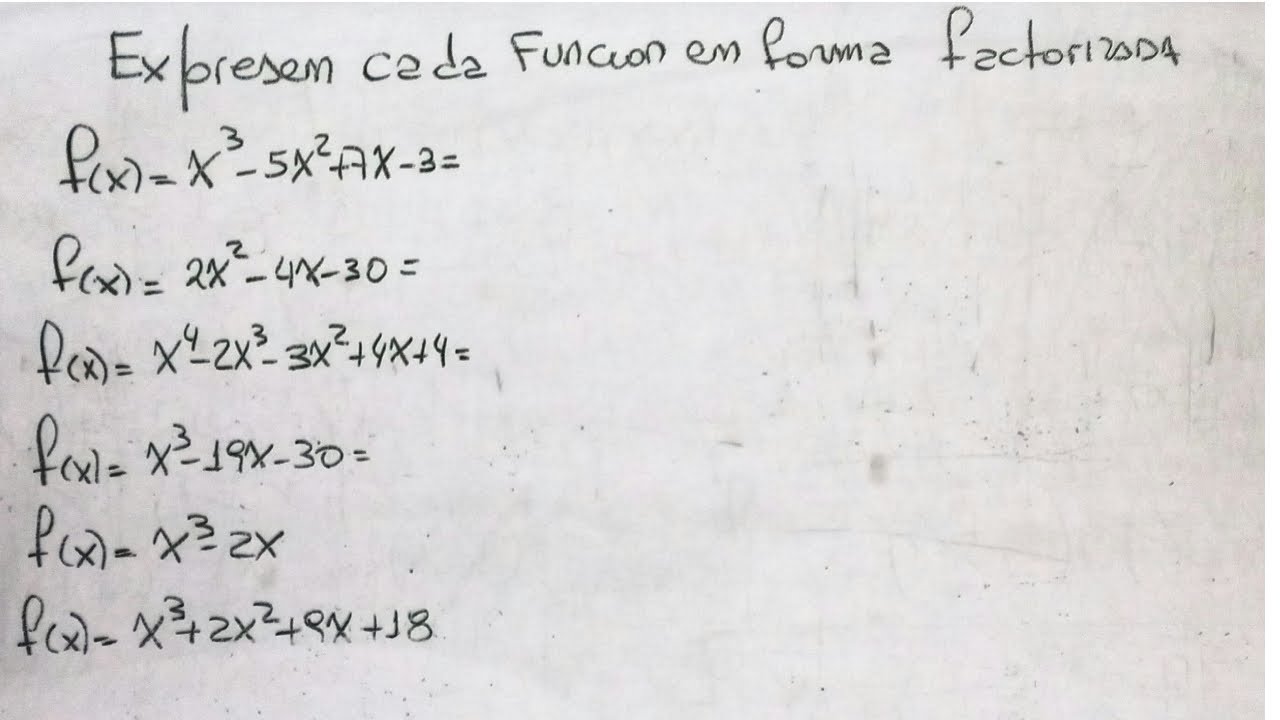 Expresen cada Funcion en forma factorizada
f(x) = x³ - 5x² + 7x - 3 =
f(x) = 2x² - 4x - 30 =
f(x) = x⁴ - 2x³ - 3x² + 4x + 4 =
f(x) = x³ - 19x - 30 =
f(x) = x³ - 2x
f(x) = x³ + 2x² + 9x + 18